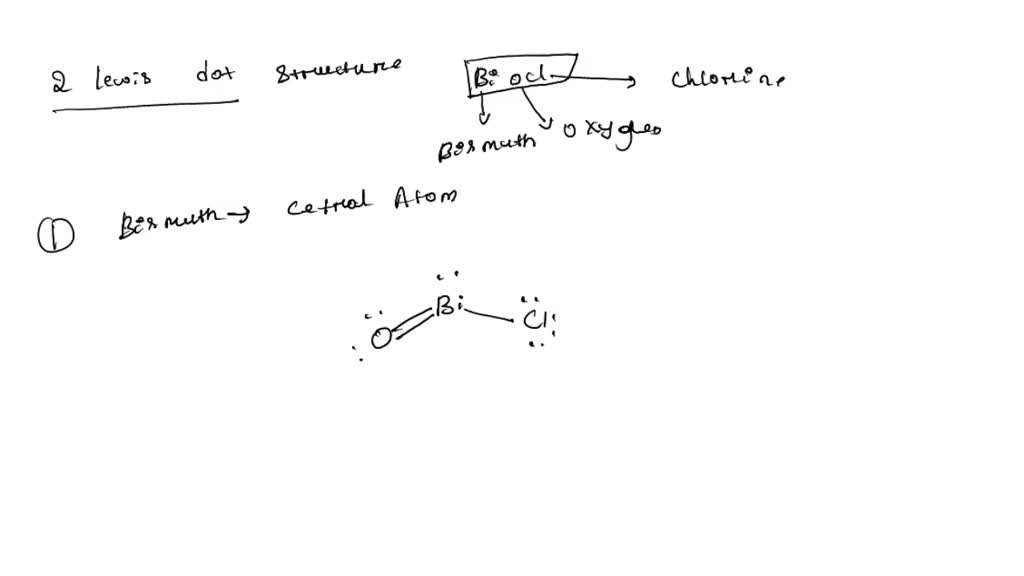 2 lewis dot structure BiOCl → Chlorine
Bismuth Oxygen
① Bismuth → Cetral Atom
Bi
O Cl